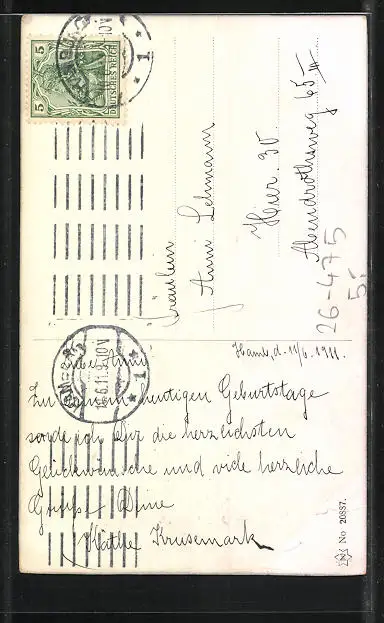 5 5
DEUTSCHES REICH
HAMBURG
1
10V
Fräulein
Anni Lehmann
Hier. 30
Abendrothsweg 65 III
26-475
5.-
Hamb. d. 11/6. 1911.
11.6.11.9-10V
* 1 *
Liebe Anni!
Zu Deinem heutigen Geburtstage
sende ich Dir die herzlichsten
Glückwünsche und viele herzliche
Grüße Deine
Käthe Krusemark
No 20887.